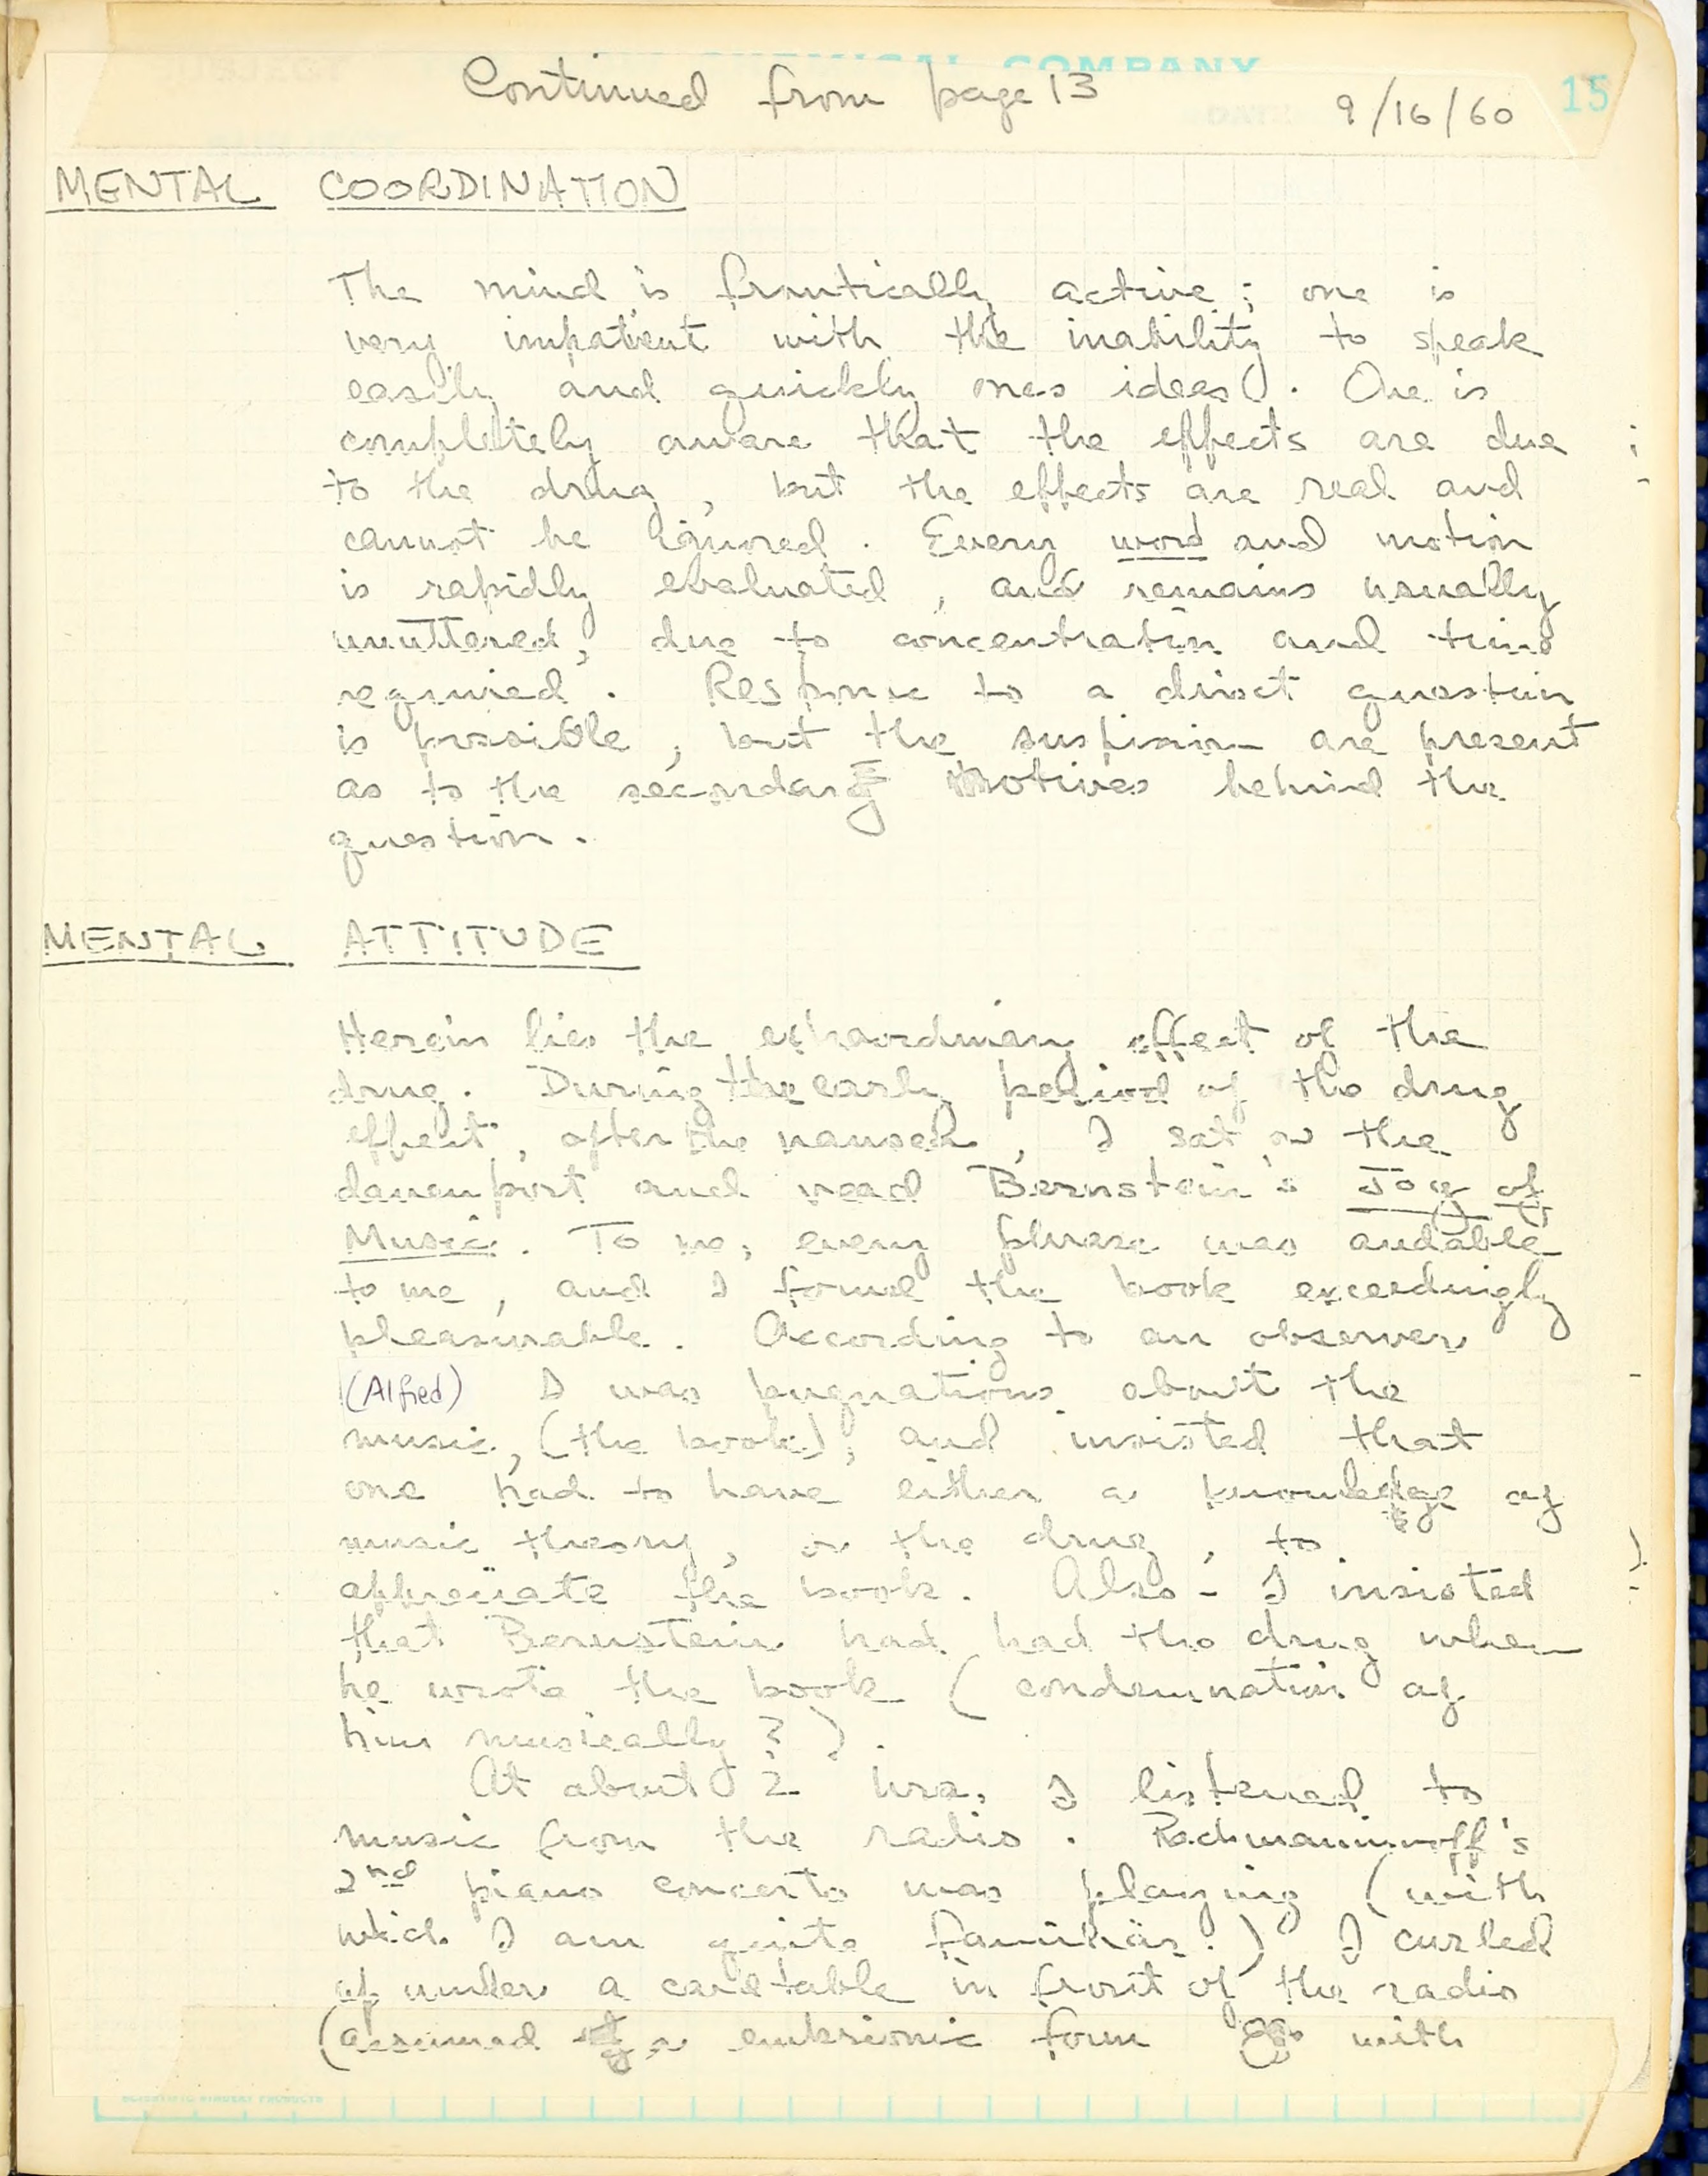 COMPANY
Continued from page 13
9/16/60
15
MENTAL COORDINATION
The mind is frantically active; one is
very impatient with the inability to speak
easily and quickly ones ideas. One is
completely aware that the effects are due
to the drug, but the effects are real and
cannot be ignored. Every word and motion
is rapidly evaluated, and remains usually
unuttered, due to concentration and time
required. Response to a direct question
is possible, but the suspicions are present
as to the secondary motives behind the
question.
MENTAL ATTITUDE
Herein lies the extraordinary effect of the
drug. During the early period of the drug
effect, after the nausea, I sat on the
davenport and read Bernstein's Joy of
Music. To me, every phrase was audable
to me, and I found the book exceedingly
pleasurable. According to an observer
(Alfred) I was pugnatious about the
music, (the book), and insisted that
one had to have either a knowledge of
music theory, or the drug, to
appreciate the book. Also - I insisted
that Bernstein had had the drug when
he wrote the book (condemnation of
him musically?).
At about 2 hrs, I listened to
music from the radio. Rachmaninoff's
2nd piano concerto was playing (with
which I am quite familiar.) I curled
up under a card table in front of the radio
(assumed a embrionic form with
SCIENTIFIC STUDENT PRODUCTS